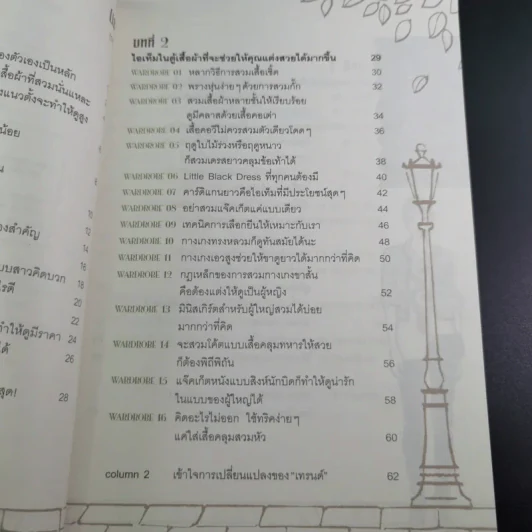 องตัวเองเป็นหลัก
เสื้อผ้าที่สวมนั่นแหละ
งแนวตั้งจะทำให้ดูสูง
น้อย
องสำคัญ
บบสาวคิดบวก
ไรดี
ทำให้ดูมีราคา
ได้
สุด!
12
14
16
18
20
22
24
26
28
บทที่ 2
ไอเท็มในตู้เสื้อผ้าที่จะช่วยให้คุณแต่งสวยได้มากขึ้น 29
WARDROBE 01 หลากวิธีการสวมเสื้อเชิ้ต 30
WARDROBE 02 พรางหุ่นง่ายๆ ด้วยการสวมกั๊ก 32
WARDROBE 03 สวมเสื้อผ้าหลายชั้นให้เรียบร้อย
ดูมีคลาสด้วยเสื้อคอเต่า 34
WARDROBE 04 เสื้อคอวีไม่ควรสวมตัวเดียวโดดๆ 36
WARDROBE 05 ฤดูใบไม้ร่วงหรือฤดูหนาว
ก็สวมเดรสยาวคลุมข้อเท้าได้ 38
WARDROBE 06 Little Black Dress ที่ทุกคนต้องมี 40
WARDROBE 07 คาร์ดิแกนยาวคือไอเท็มที่มีประโยชน์สุดๆ 42
WARDROBE 08 อย่าสวมแจ็กเก็ตแค่แบบเดียว 44
WARDROBE 09 เทคนิคการเลือกยีนให้เหมาะกับเรา 46
WARDROBE 10 กางเกงทรงหลวมก็ดูทันสมัยได้นะ 48
WARDROBE 11 กางเกงเอวสูงช่วยให้ขาดูยาวได้มากกว่าที่คิด 50
WARDROBE 12 กฎเหล็กของการสวมกางเกงขาสั้น
คือต้องแต่งให้ดูเป็นผู้หญิง 52
WARDROBE 13 มินิสเกิร์ตสำหรับผู้ใหญ่สวมได้บ่อย
มากกว่าที่คิด 54
WARDROBE 14 จะสวมโค้ตแบบเสื้อคลุมทหารให้สวย
ก็ต้องพิถีพิถัน 56
WARDROBE 15 แจ็กเก็ตหนังแบบสิงห์นักบิดก็ทำให้ดูน่ารัก
ในแบบของผู้ใหญ่ได้ 58
WARDROBE 16 คิดอะไรไม่ออก ใช้ทริคง่ายๆ
แค่ใส่เสื้อคลุมสวมหัว 60
column 2 เข้าใจการเปลี่ยนแปลงของ "เทรนด์" 62